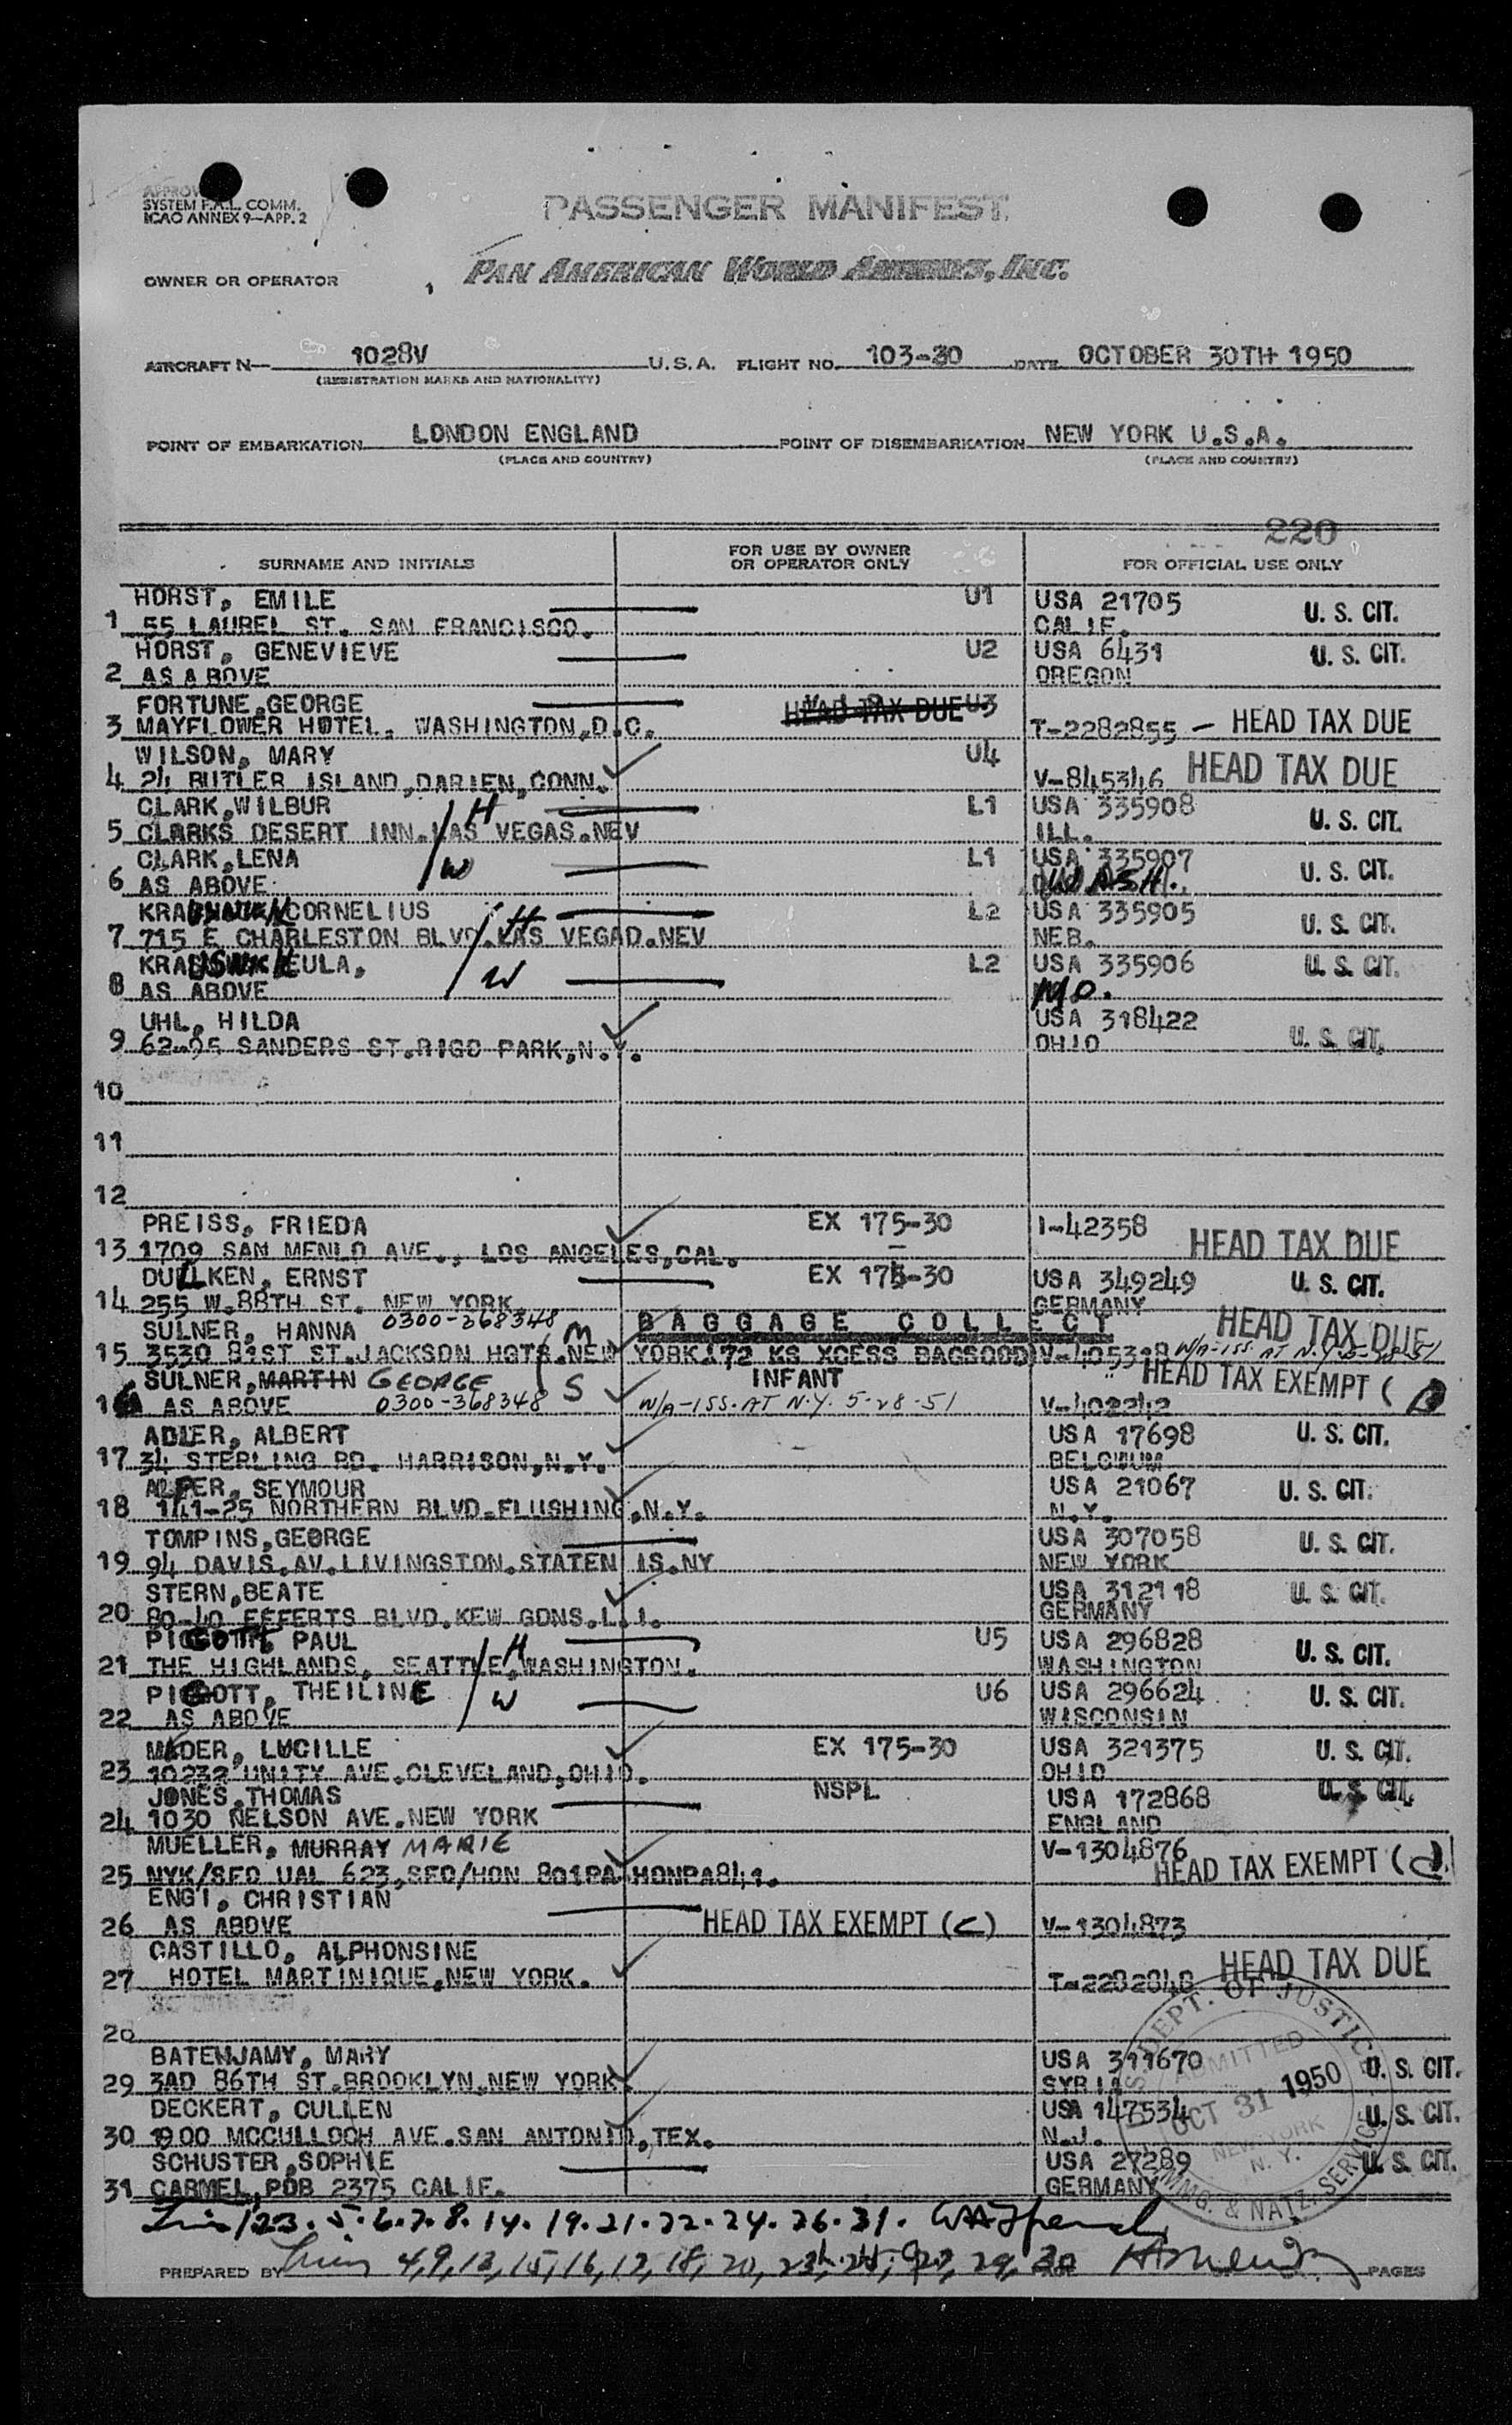 SYSTEM F.A.L. COMM.
ICAO ANNEX 9—APP. 2
PASSENGER MANIFEST
OWNER OR OPERATOR
PAN AMERICAN WORLD AIRWAYS, INC.
AIRCRAFT N— 1028V U.S.A. FLIGHT NO. 103-30 DATE OCTOBER 30TH 1950
(REGISTRATION MARKS AND NATIONALITY)
POINT OF EMBARKATION LONDON ENGLAND POINT OF DISEMBARKATION NEW YORK U.S.A.
(PLACE AND COUNTRY) (PLACE AND COUNTRY)
220
SURNAME AND INITIALS FOR USE BY OWNER OR OPERATOR ONLY FOR OFFICIAL USE ONLY
HORST, EMILE U1 USA 21705 U. S. CIT.
1 55 LAUREL ST. SAN FRANCISCO. CALIF.
HORST, GENEVIEVE U2 USA 6431 U. S. CIT.
2 AS ABOVE OREGON
FORTUNE,GEORGE HEAD TAX DUE U3
3 MAYFLOWER HOTEL, WASHINGTON,D.C. T-2282855 — HEAD TAX DUE
WILSON, MARY U4
4 24 BUTLER ISLAND,DARIEN,CONN. V-845346 HEAD TAX DUE
CLARK,WILBUR H L1 USA 335908 U. S. CIT.
5 CLARKS DESERT INN.LAS VEGAS.NEV ILL.
CLARK,LENA W L1 USA 335907 U. S. CIT.
6 AS ABOVE WASH.
CORNELIUS H L2 USA 335905 U. S. CIT.
7 715 E CHARLESTON BLVD.LAS VEGAD.NEV NEB.
EULA, W L2 USA 335906 U. S. CIT.
8 AS ABOVE MO.
UHL, HILDA USA 318422
9 62-95 SANDERS ST.RIGO PARK,N.Y. OHIO U. S. CIT.
10
11
12
PREISS, FRIEDA EX 175-30 I-42358
13 1709 SAN MENLO AVE., LOS ANGELES,CAL. HEAD TAX DUE
DULLKEN, ERNST EX 175-30 USA 349249 U. S. CIT.
14 255 W.88TH ST. NEW YORK GERMANY
SULNER, HANNA 0300-368348 M BAGGAGE COLLECT HEAD TAX DUE
15 3530 81ST ST.JACKSON HGTS.NEW YORK.172 KS XCESS BAGSOOD V-405318 W/A-ISS. AT N.Y. 5-28-51
SULNER,MARTIN GEORGE S INFANT HEAD TAX EXEMPT (
16 AS ABOVE 0300-368348 W/A-ISS. AT N.Y. 5-28-51 V-402242
ADLER, ALBERT USA 17698 U. S. CIT.
17 34 STERLING RD. HARRISON,N.Y. BELGIUM
ALPER, SEYMOUR USA 21067 U. S. CIT.
18 141-25 NORTHERN BLVD.FLUSHING,N.Y. N.Y.
TOMPINS,GEORGE USA 307058 U. S. CIT.
19 94 DAVIS.AV.LIVINGSTON.STATEN IS.NY NEW YORK
STERN,BEATE USA 312118 U. S. CIT.
20 80-40 LEFFERTS BLVD.KEW GDNS.L.I. GERMANY
PIGOTT, PAUL H U5 USA 296828
21 THE HIGHLANDS, SEATTLE,WASHINGTON. WASHINGTON U. S. CIT.
PIGOTT, THEILINE W U6 USA 296624 U. S. CIT.
22 AS ABOVE WISCONSIN
MADER, LUCILLE EX 175-30 USA 321375 U. S. CIT.
23 10232 UNITY AVE.CLEVELAND,OHIO. OHIO
JONES,THOMAS NSPL USA 172868 U. S. CIT.
24 1030 NELSON AVE.NEW YORK ENGLAND
MUELLER, MURRAY MARIE V-1304876
25 NYK/SFO UAL 623,SFO/HON 801PA HONPA841. HEAD TAX EXEMPT (
ENGI, CHRISTIAN
26 AS ABOVE HEAD TAX EXEMPT (C) V-1304873
CASTILLO, ALPHONSINE
27 HOTEL MARTINIQUE,NEW YORK. T-2282848 HEAD TAX DUE
28
BATENJAMY, MARY USA 311670 U. S. CIT.
29 3AD 86TH ST.BROOKLYN.NEW YORK. SYRIA
DECKERT, CULLEN USA 147534 U. S. CIT.
30 1900 MCCULLOCH AVE.SAN ANTONIO,TEX. N.J.
SCHUSTER,SOPHIE USA 27289 U. S. CIT.
31 CARMEL,POB 2375 CALIF. GERMANY
DEPT. OF JUSTICE
ADMITTED
OCT 31 1950
NEW YORK
N. Y.
IMMG. & NATZ. SERVICE
5. 6. 7. 8. 14. 19. 21. 22. 24. 26. 31.
PREPARED BY 4, 9, 13, 15, 16, 17, 18, 20, 29, 30 PAGES